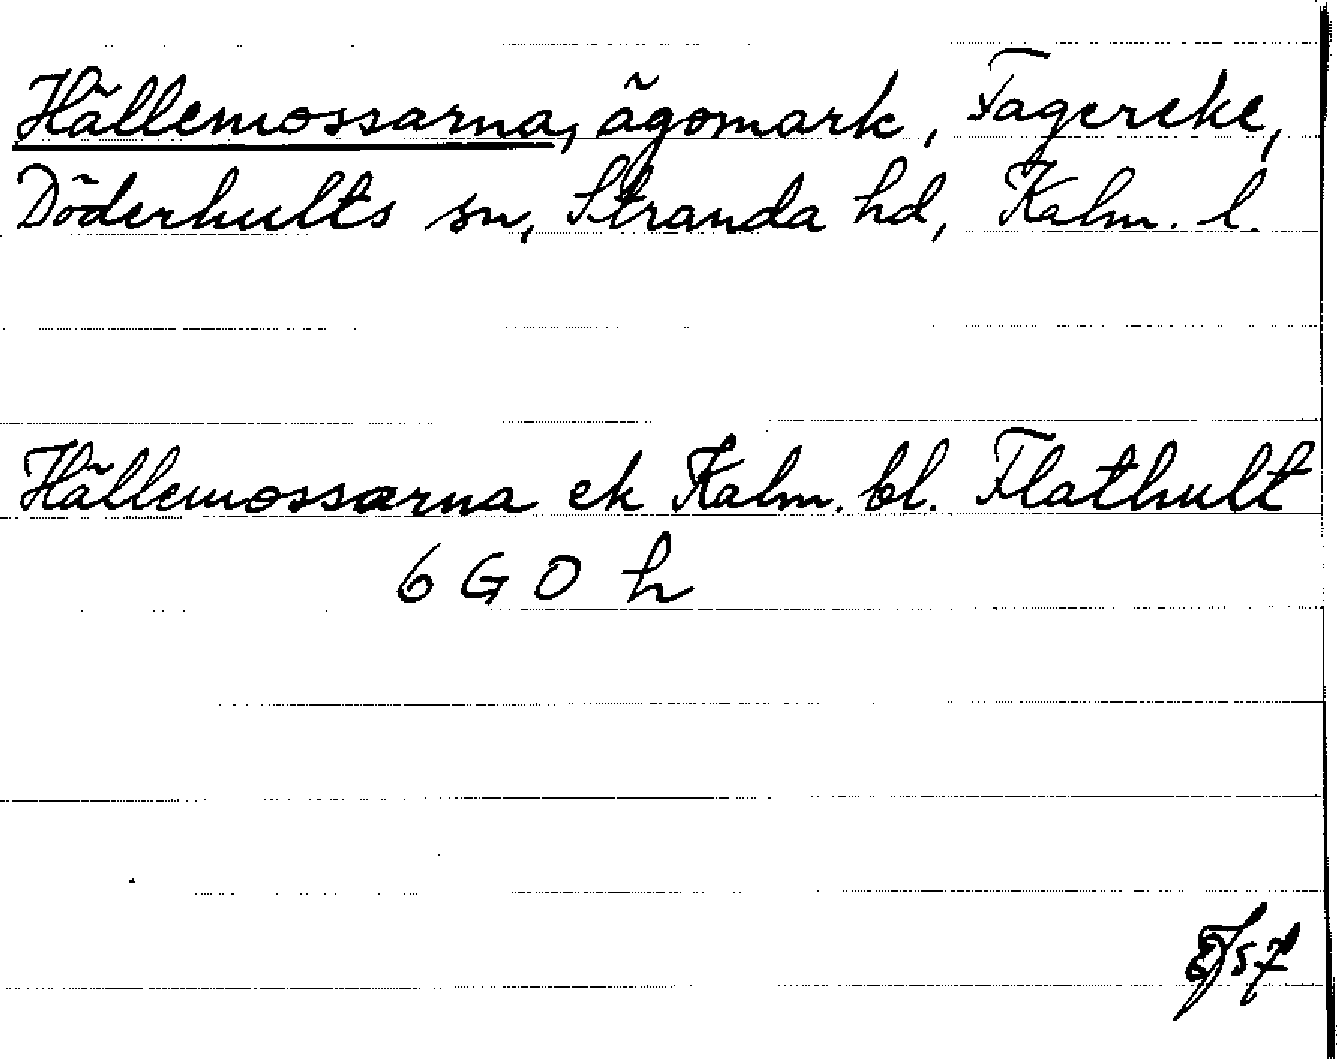 Hällemossarna, ägomark, Fagereke,
Döderhults sn, Stranda hd, Kalm. l.
Hällemossarna ek Kalm. bl. Flathult
6 G 0 h